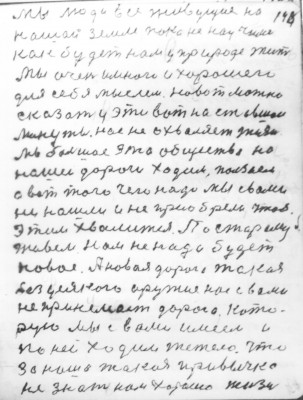 Мы люди все живущие на
нашей земле пока не научимся
как будет нам у природе жить
Мы очен много и хорошего
для себя мыслем. Но вот можно
сказать у эти вот на
минуты. нас не охваляет
Мы большое это общество по
нашей дороги ходим, ползаем
а вот того чего надо мы с вами
не нашли и не приобрели чтоб
этим хвалится. По старому
живем нам не надо будет
новое. А новая дорога такая
без усякого оружие нас с вами
не принемает дорога, кото-
рую мы с вами имеем и
по ней ходим тяжело, что
за наша такая привычка
не знать нам хорошо жизн